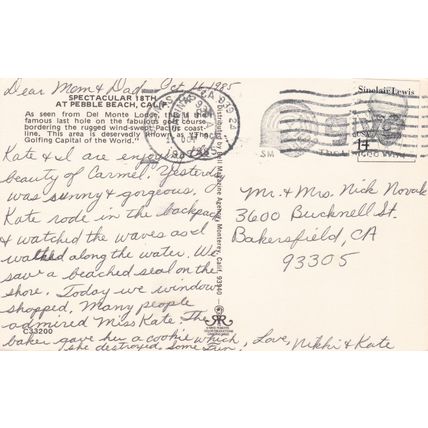 Dear Mom & Dad— Oct 16, 1985
SPECTACULAR 18TH
AT PEBBLE BEACH, CALIF.
As seen from Del Monte Lodge, this is the
famous 18th hole on the fabulous golf course
bordering the rugged wind-swept Pacific coast
line. This area is deservedly known as "The
Golfing Capital of the World."
Kate & I are enjoying the
beauty of Carmel. Yesterday
was sunny & gorgeous.
Kate rode in the backpack
& watched the waves as I
walked along the water. We
saw a beached seal on the
shore. Today we window
shopped. Many people
admired Miss Kate. The
baker gave her a cookie which
she destroyed. Some fun,
Love, Nikki & Kate
C33200
Distributed by Bell Magazine Agency, Monterey, Calif. 93940
SALINAS CA 939
1985
Sinclair Lewis
USA
14
Mr. & Mrs. Nick Novak
3600 Bucknell St.
Bakersfield, CA
93305